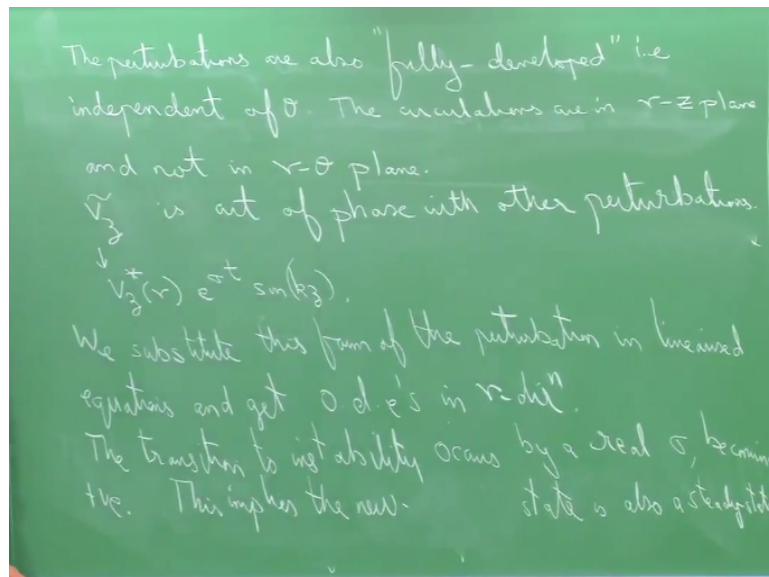 The perturbations are also "fully-developed" i.e
independent of θ. The circulations are in r-z plane
and not in r-θ plane.
ṽz is out of phase with other perturbations.
↓
Vz*(r) e^σt sin(kz).
We substitute this form of the perturbation in linearised
equations and get o.d.e's in r-dirⁿ.
The transition to instability occurs by a real σ, becomin
+ve. This implies the new. state is also a steady stat